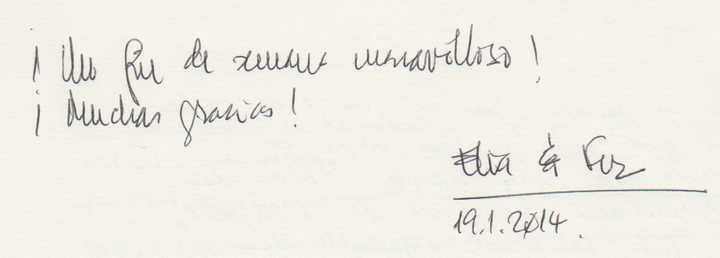 ¡Un fin de semana maravilloso!
¡Muchas gracias!
&
19.1.2014.